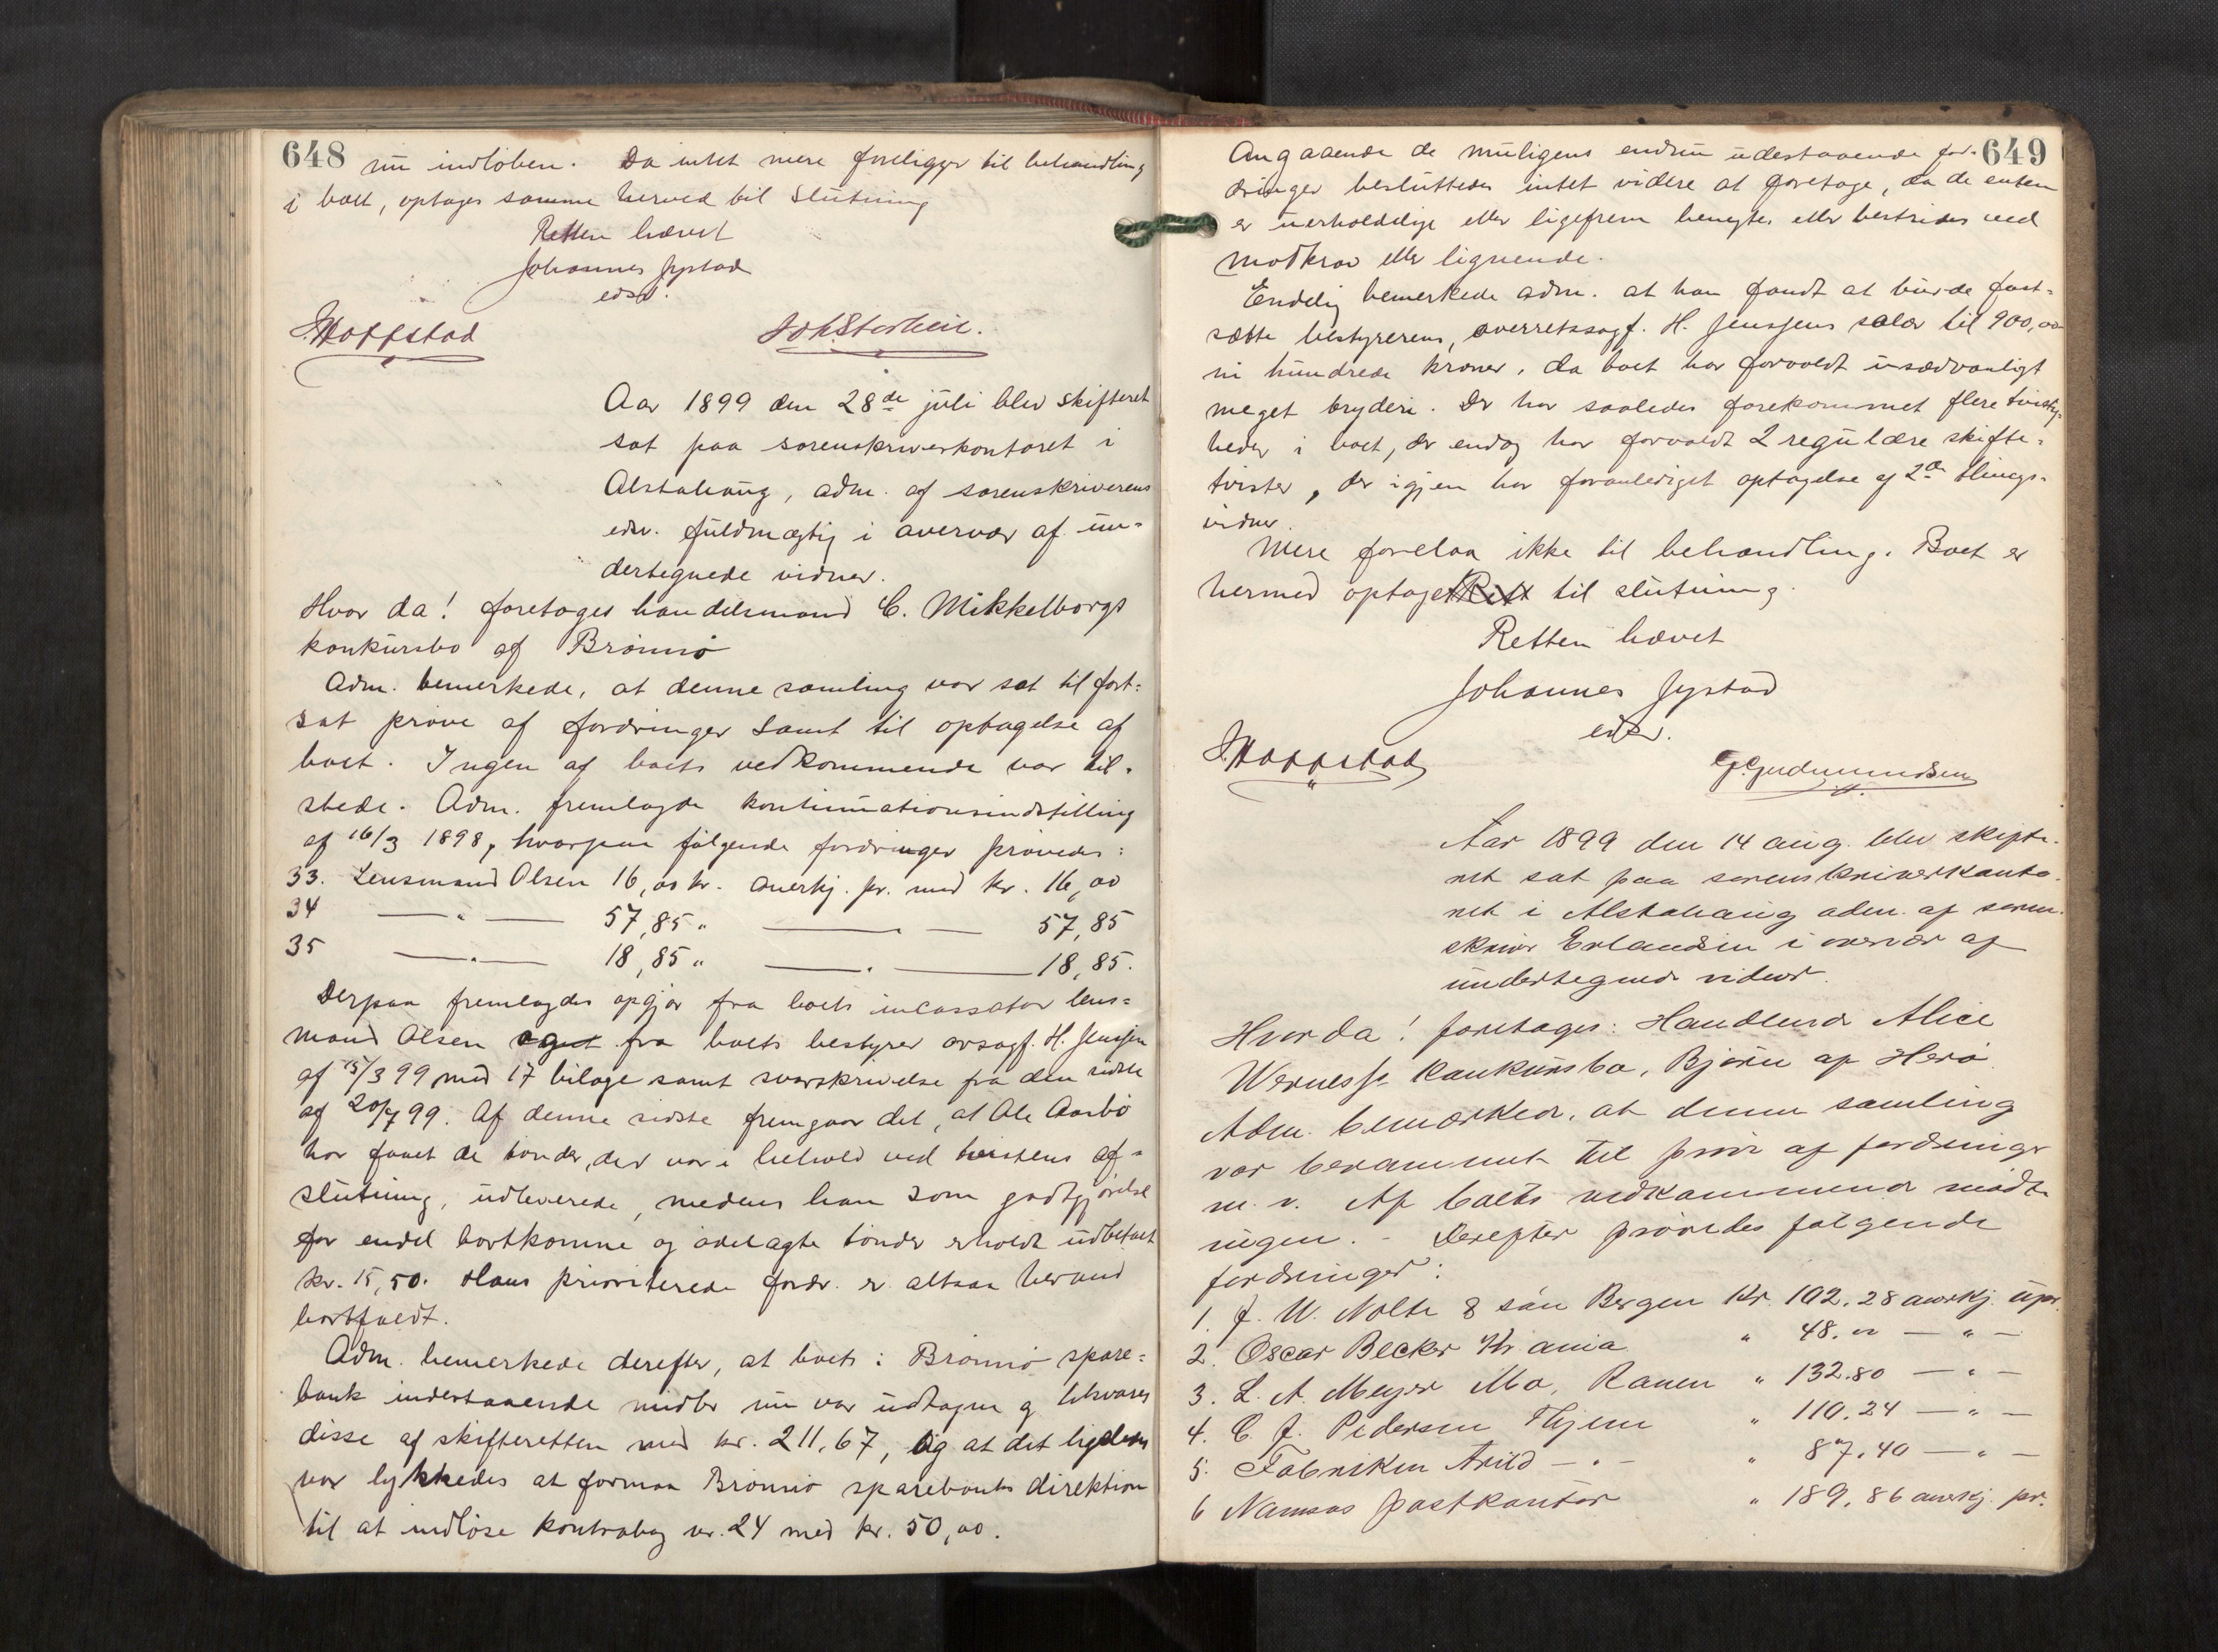 648
nu indløben. Da intet mere foreligger til behandling
i boet, optages samme herved til slutning
Retten hævet
Johannes Jystad
edsv.
J. Hoffstad Joh. Storheil.
Aar 1899 den 28de juli blev skifteret
sat paa sorenskriverkontoret i
Alstahaug, adm. af sorenskriverens
edsv. fuldmægtig i overvær af un-
dertegnede vidner.
Hvor da! foretoges handelsmand C. Mikkelborgs
konkursbo af Brønnø
Adm. bemerkede, at denne samling var sat til fort-
sat prøve af fordringer samt til optagelse af
boet. Ingen af boets vedkommende var til-
stede. Adm. fremlagde kontinuationsindstilling
af 16/3 1898, hvorpaa følgende fordringer prøvedes:
33. Lensmand Olsen 16,00 kr. anerkj. pr. med kr. 16,00
34 —"— 57,85 " —"— 57,85
35 —"— 18,85 " —"— 18,85.
Derpaa fremlagdes opgjør fra boets incassator lens-
mand Olsen og fra boets bestyrer ovsagf. H. Jenssen
af 15/3 99 med 17 bilage samt svarskrivelse fra den sidste
af 20/7 99. Af denne sidste fremgaar det, at Ole Aarbø
har faaet de tønder, der var i behold ved tvistens af-
slutning, udleverede, medens han som godtgjørelse
for endel bortkomne og ødelagte tønder erholdt udbetalt
kr. 15,50. Hans prioriterede fordr. er altsaa herved
bortfaldt.
Adm. bemerkede derefter, at boets i Brønnø spare-
bank indestaaende midler nu var udtagne og
disse af skifteretten med kr. 211,67, og at det ligeledes
var lykkedes at formaa Brønnø sparebanks direktion
til at indløse kontrabog nr. 24 med kr. 50,00.
649
Angaaende de muligens endnu udestaaende for-
dringer besluttedes intet videre at foretage, da de enten
er uerholdelige eller ligefrem benegtes eller bestrides ved
modkrav eller lignende.
Endelig bemerkede adm. at han fandt at burde fast-
sætte bestyrerens, overretssagf. H. Jenssens salær til 900,00
ni hundrede kroner, da boet har forvoldt usædvanligt
meget bryderi. Der har saaledes forekommet flere tvistig-
heder i boet, der endog har forvoldt 2 regulære skifte-
tvister, der igjen har foranlediget optagelse af 2de things-
vidner.
Mere forelaa ikke til behandling. Boet er
hermed optaget til slutning.
Retten hævet
Johannes Jystad
edsv.
J. Hoffstad G. Gudmundsen
Aar 1899 den 14 aug. blev skifte-
ret sat paa sorenskriverkonto-
ret i Alstahaug adm. af soren-
skriver Erlandsen i overvær af
undertegnede vidner.
Hvor da! foretoges: Handlende Alice
Wernes's konkursbo, Bjørn af Herø
Adm. bemærkede, at denne samling
var berammet til prøve af fordringer
m. v. Af boets vedkommende mødte
ingen. - Derefter prøvedes følgende
fordringer:
1. J. W. Nolte & søn Bergen Kr. 102.28 anerkj. upr.
2. Oscar Becker Kr.ania " 48.00 —"—
3. L. A. Meyer Mo, Ranen " 132.80 —"—
4. C. J. Pedersen Thjem " 110.24 —"—
5. Fabriken Arild —"— " 87.40 —"—
6 Namsos postkontor " 189.86 anerkj. pr.